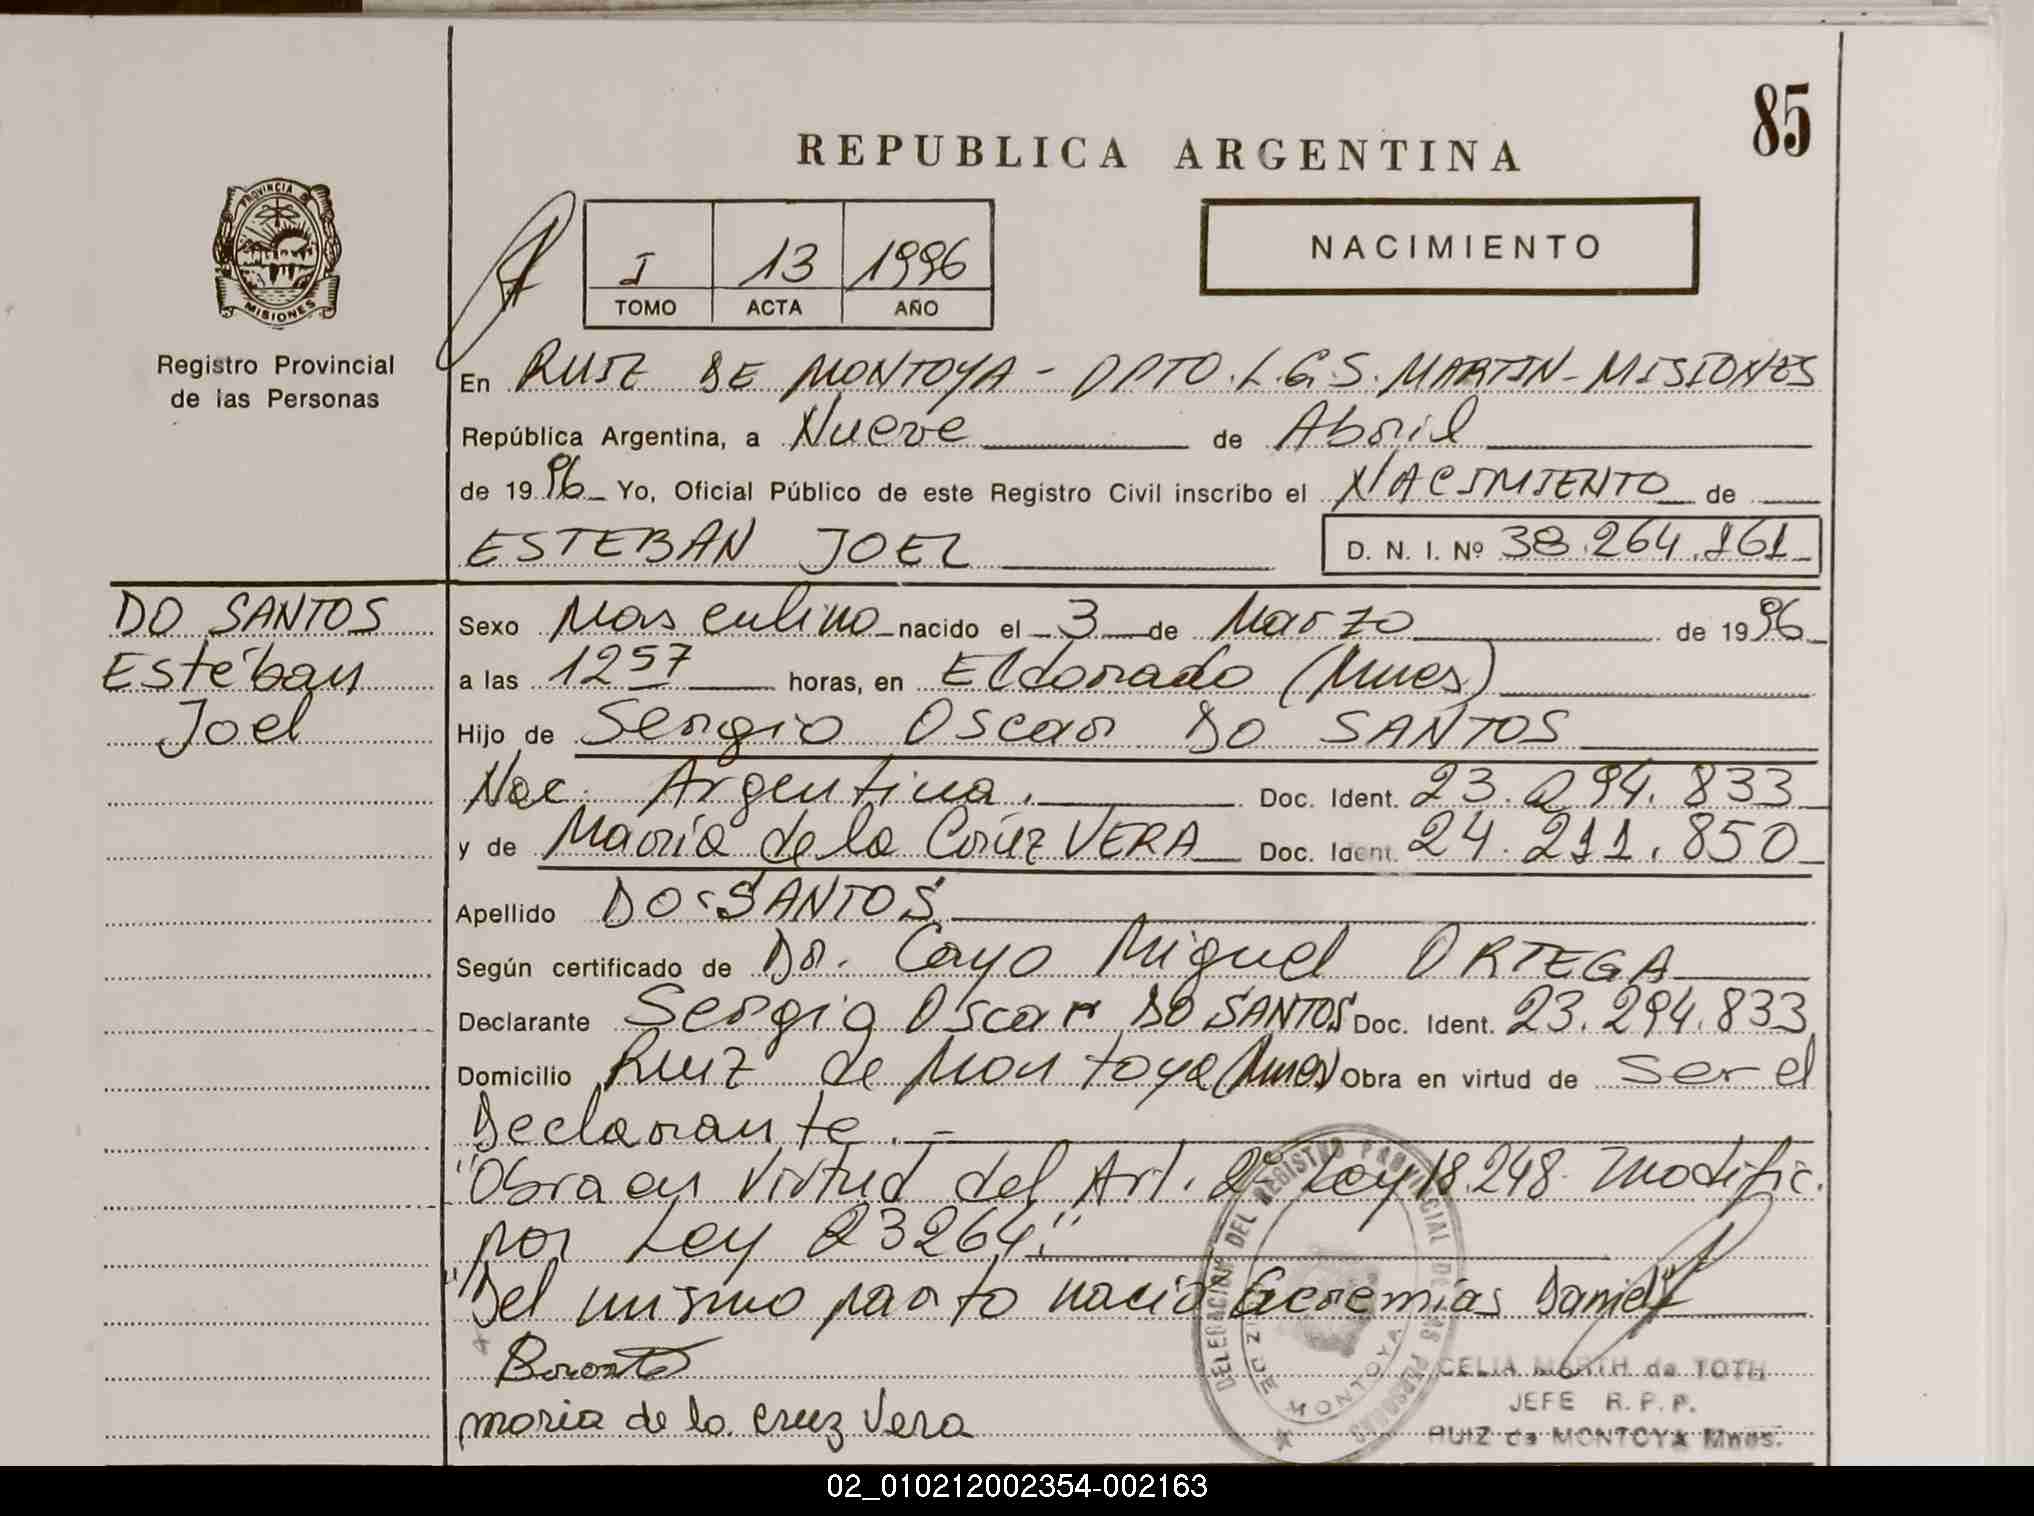 85
REPUBLICA ARGENTINA
PROVINCIA
MISIONES
Registro Provincial
de las Personas
I 13 1996
TOMO ACTA AÑO
NACIMIENTO
En RUIZ DE MONTOYA - DPTO. L.G.S. MARTIN - MISIONES
República Argentina, a Nueve de Abril
de 1996 Yo, Oficial Público de este Registro Civil inscribo el NACIMIENTO de
ESTEBAN JOEL D. N. I. Nº 38.264.161
DO SANTOS
Esteban
Joel
Sexo Masculino nacido el 3 de Marzo de 1996
a las 12 57 horas, en Eldorado (Mnes)
Hijo de Sergio Oscar DO SANTOS
Nac. Argentina. Doc. Ident. 23.294.833
y de María de la Cruz VERA Doc. Ident. 24.211.850
Apellido DO SANTOS
Según certificado de Dr. Cayo Miguel ORTEGA
Declarante Sergio Oscar DO SANTOS Doc. Ident. 23.294.833
Domicilio Ruiz de Montoya (Mnes) Obra en virtud de ser el
Declarante.-
"Obra en Virtud del Art. 2º Ley 18.248. Modific.
por Ley 23264."
"Del mismo parto nació Geremías Daniel"
maria de la cruz Vera
DELEGACION DEL REGISTRO PROVINCIAL DE LAS PERSONAS
RUIZ DE MONTOYA
CELIA MORTH de TOTH
JEFE R.P.P.
RUIZ de MONTOYA Mnes.
02_010212002354-002163